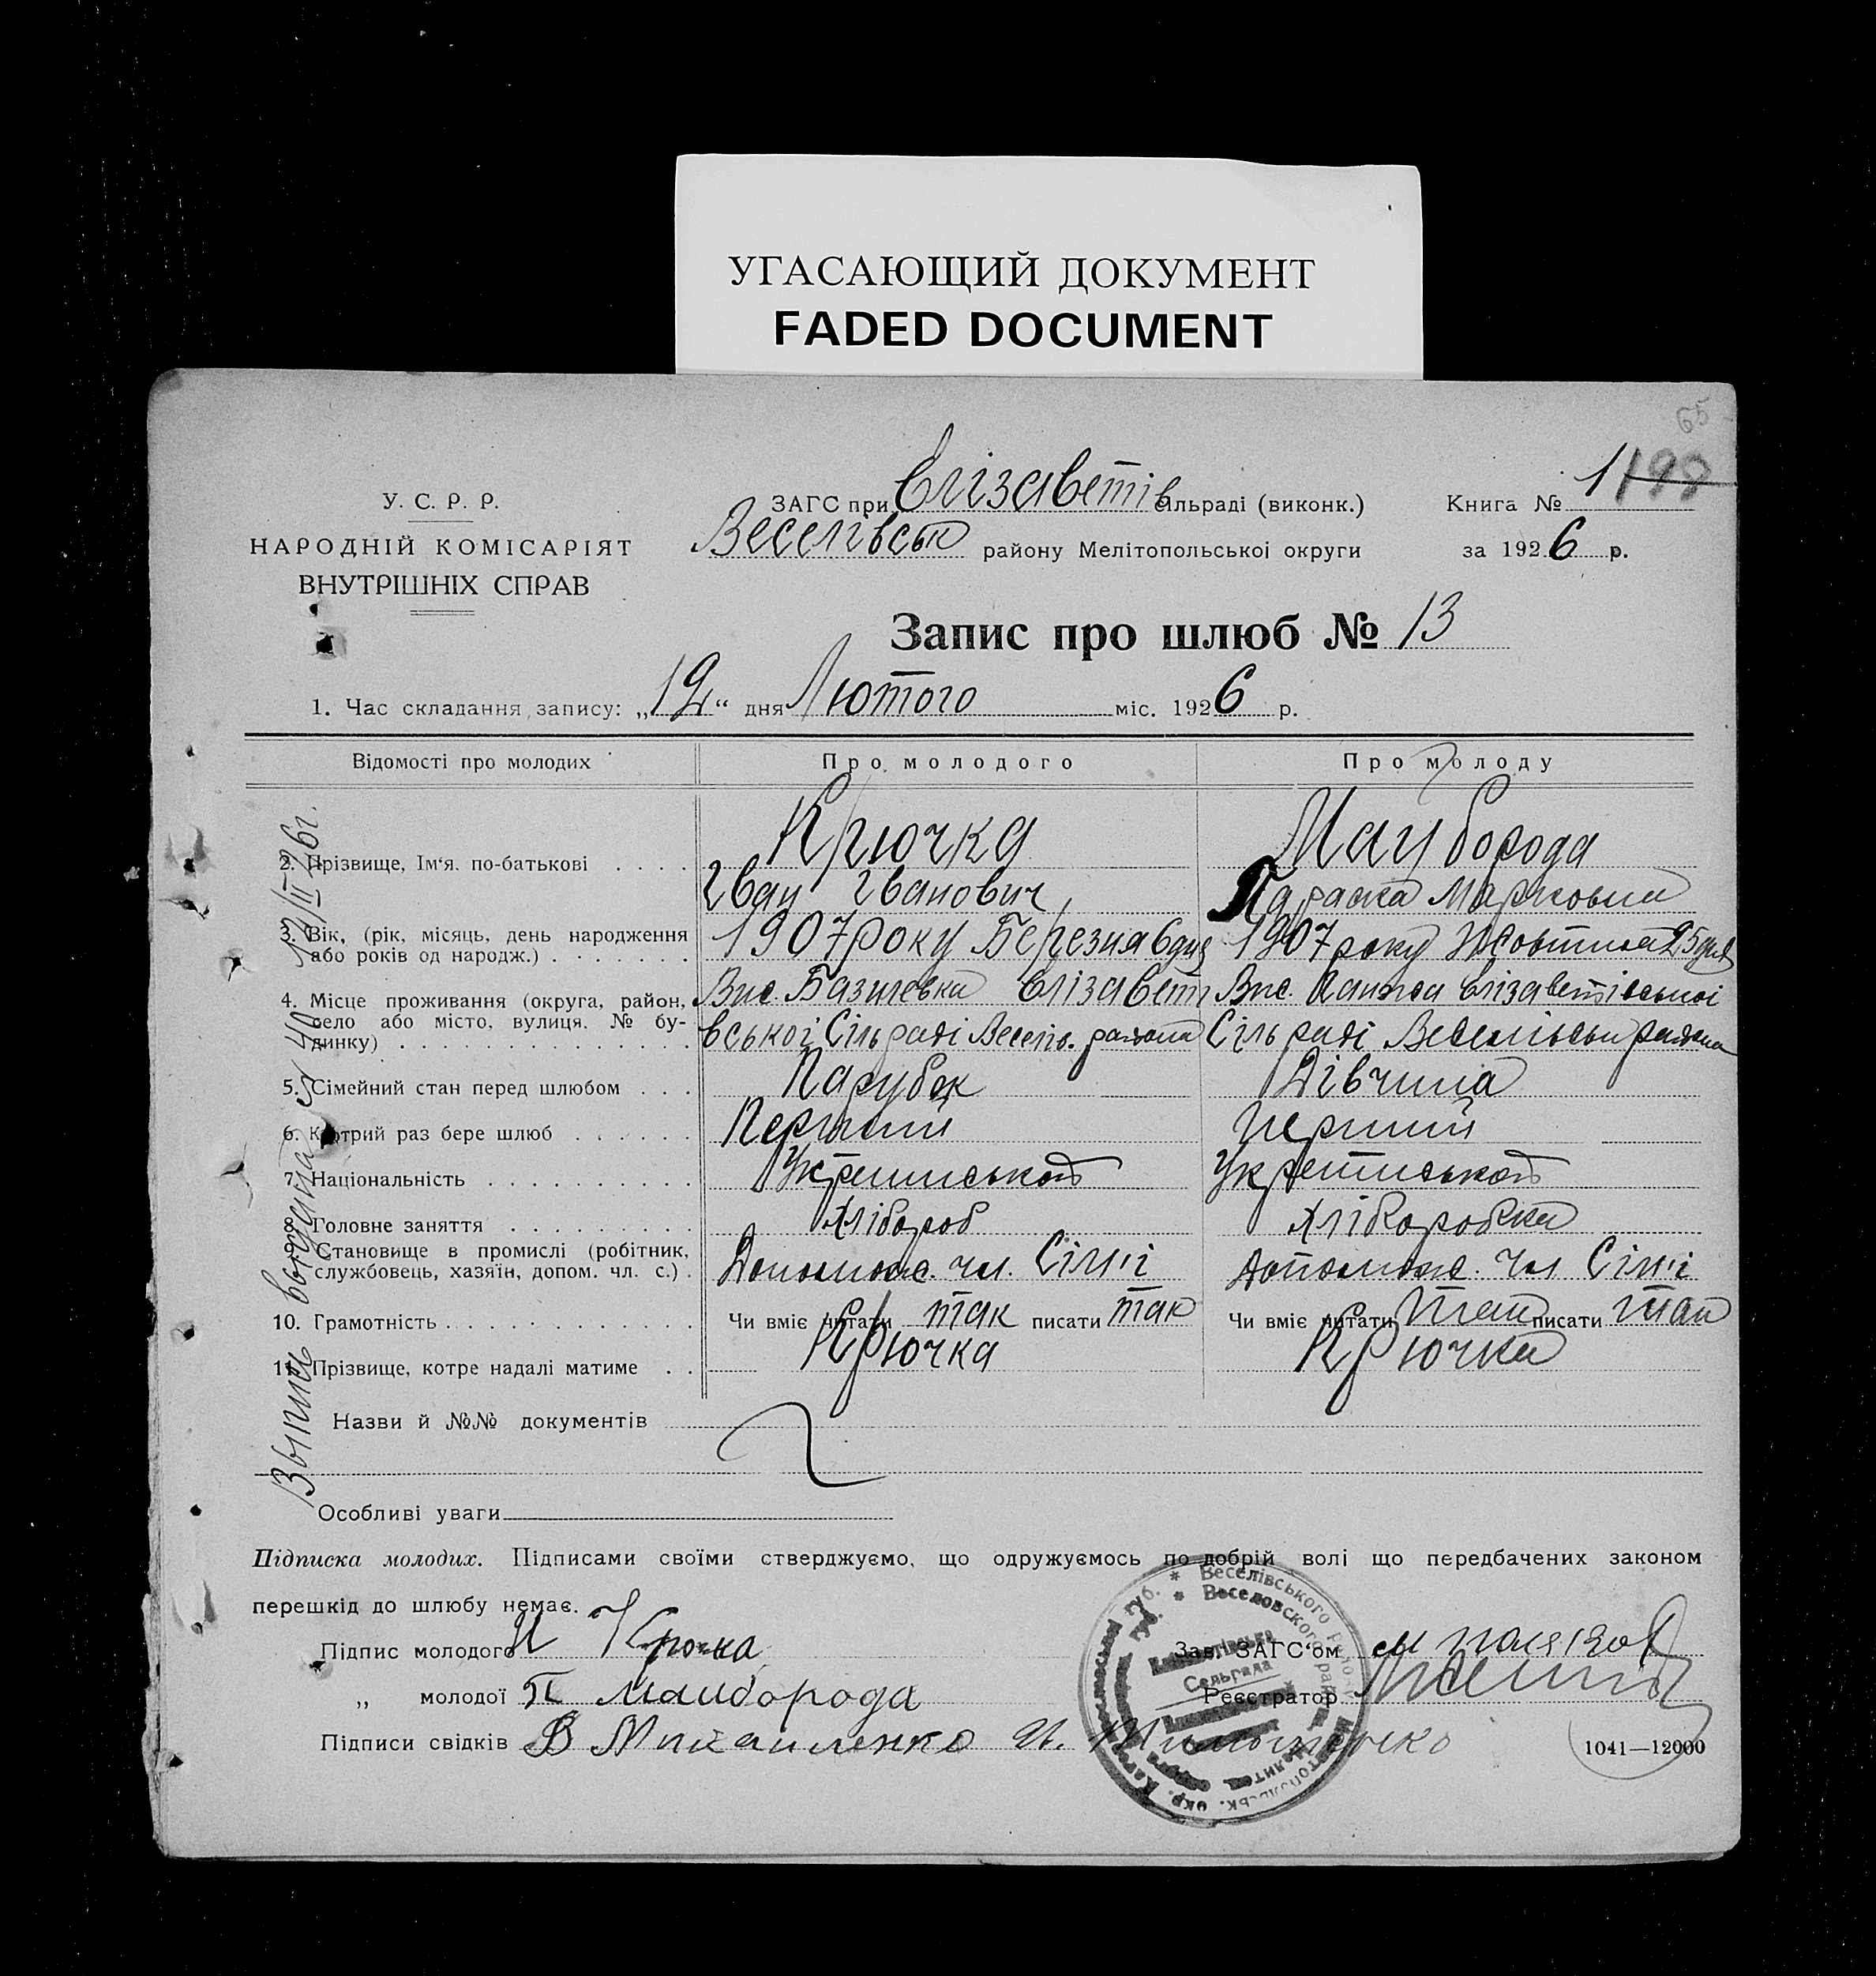 УГАСАЮЩИЙ ДОКУМЕНТ
FADED DOCUMENT
65
У. С. Р. Р.
НАРОДНІЙ КОМІСАРІЯТ
ВНУТРІШНІХ СПРАВ
ЗАГС при Єлізаветів сільраді (виконк.)
Веселівськ району Мелітопольської округи
Книга № 1 198
за 1926 р.
Запис про шлюб № 13
1. Час складання запису: „12“ дня Лютого міс. 1926 р.
Відомості про молодих Про молодого Про молоду
2. Прізвище, Ім‘я. по-батькові . . . . Крючка Майборода
Іван Іванович Параска Марковна
3. Вік, (рік, місяць, день народження 1907 року Березня 6 дня 1907 року Жовтня 25 дня
або років од народж.) . . . . . . .
4. Місце проживання (округа, район, Вис. Базилевка Єлізаветі Вис. Єлізаветівської
село або місто, вулиця. № бу- вської Сільраді Веселів. района Сільраді Веселівськ района
динку) . . . . . . . . . . . . . .
5. Сімейний стан перед шлюбом . . . Парубок Дівчина
6. Котрий раз бере шлюб . . . . . . Перший Перший
7. Національність . . . . . . . . . .
8. Головне заняття . . . . . . . . . Хлібороб Хліборобка
Становище в промислі (робітник,
службовець, хазяїн, допом. чл. с.) . Допомож. чл. Сім'ї Допомож. чл Сім'ї
10. Грамотність . . . . . . . . . . . . Чи вміє читати так писати так Чи вміє читати так писати так
11. Прізвище, котре надалі матиме . . Крючка Крючка
Назви й №№ документів
Особливі уваги
Підписка молодих. Підписами своїми стверджуємо, що одружуємось по добрій волі що передбачених законом
перешкід до шлюбу немає.
Підпис молодого И Крючка
Зав. ЗАГС‘ом
„ молодої П Майборода
Реєстратор
Підписи свідків В Михайленко И.
1041—12000
Выпись выдана 12/II 26г.
Веселівського
Веселовского
Сельрада